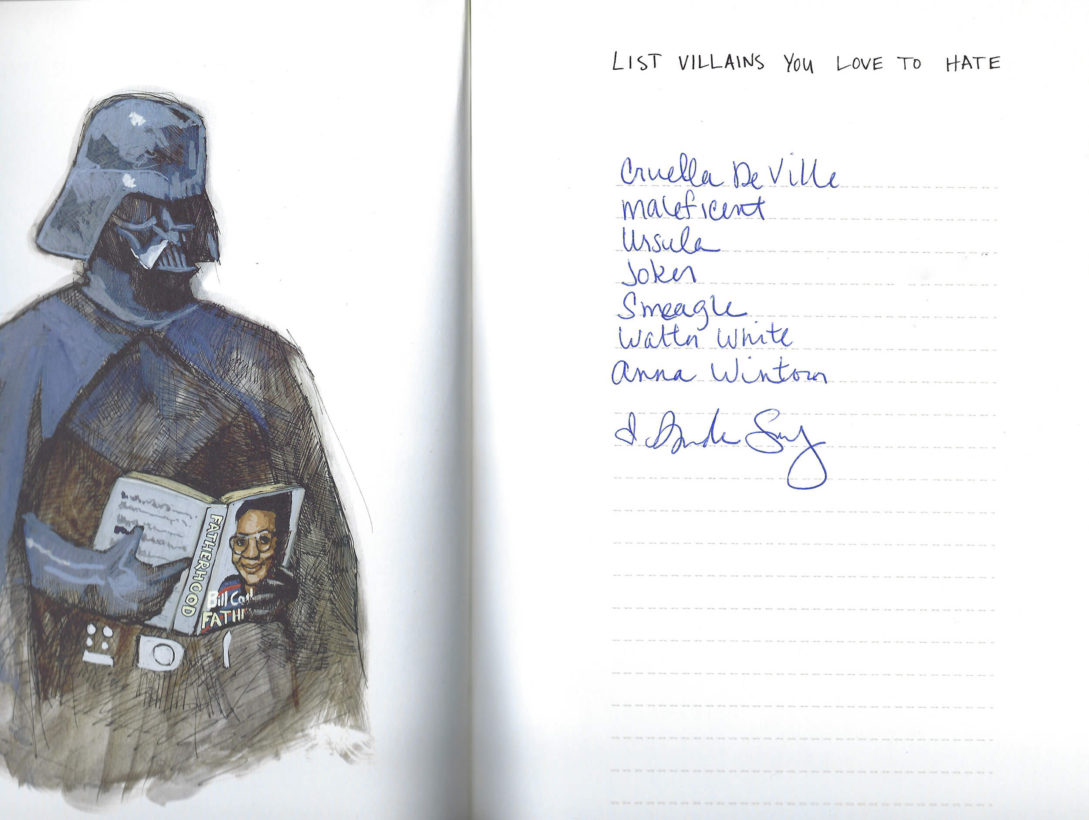 LIST VILLAINS YOU LOVE TO HATE
Cruella De Ville
Maleficent
Ursula
Joker
Smeagle
Walter White
Anna Wintour
FATHERHOOD
Bill Cos
FATH